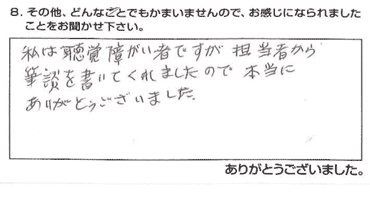 8. その他、どんなことでもかまいませんので、お感じになられました
ことをお聞かせ下さい。
私は聴覚障がい者ですが 担当者から
筆談を書いてくれましたので 本当に
ありがとうございました.
ありがとうございました。